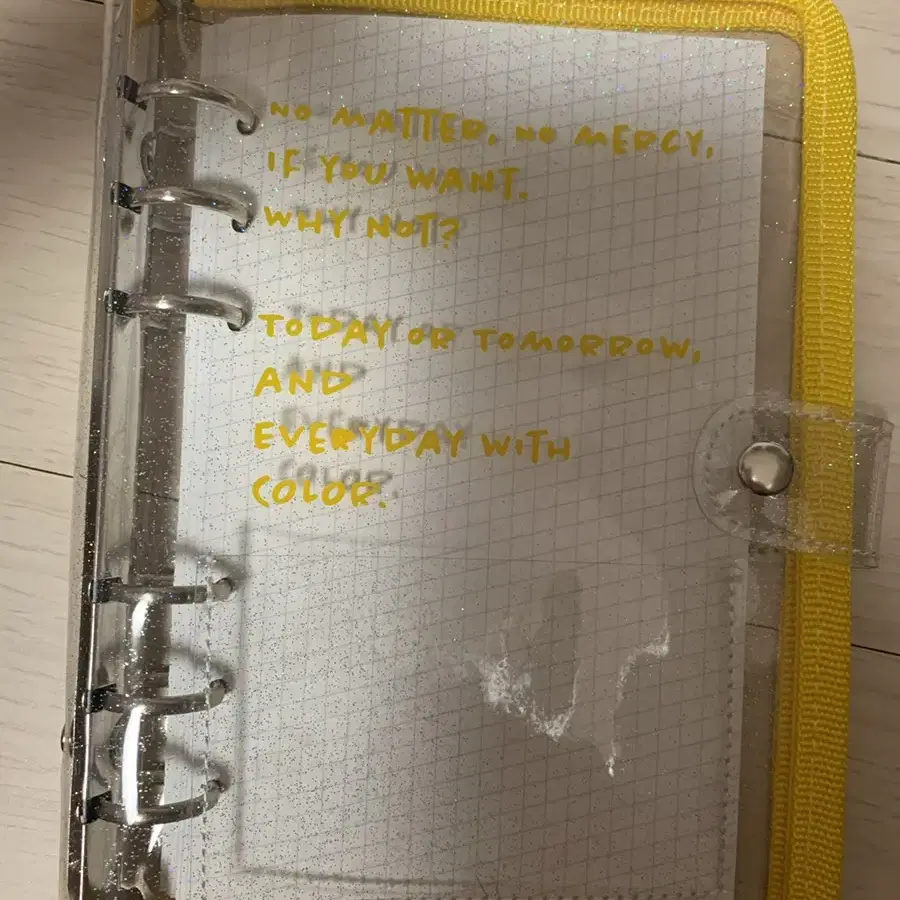 NO MATTER, NO MERCY,
IF YOU WANT.
WHY NOT?
TODAY OR TOMORROW,
AND
EVERYDAY WITH
COLOR.